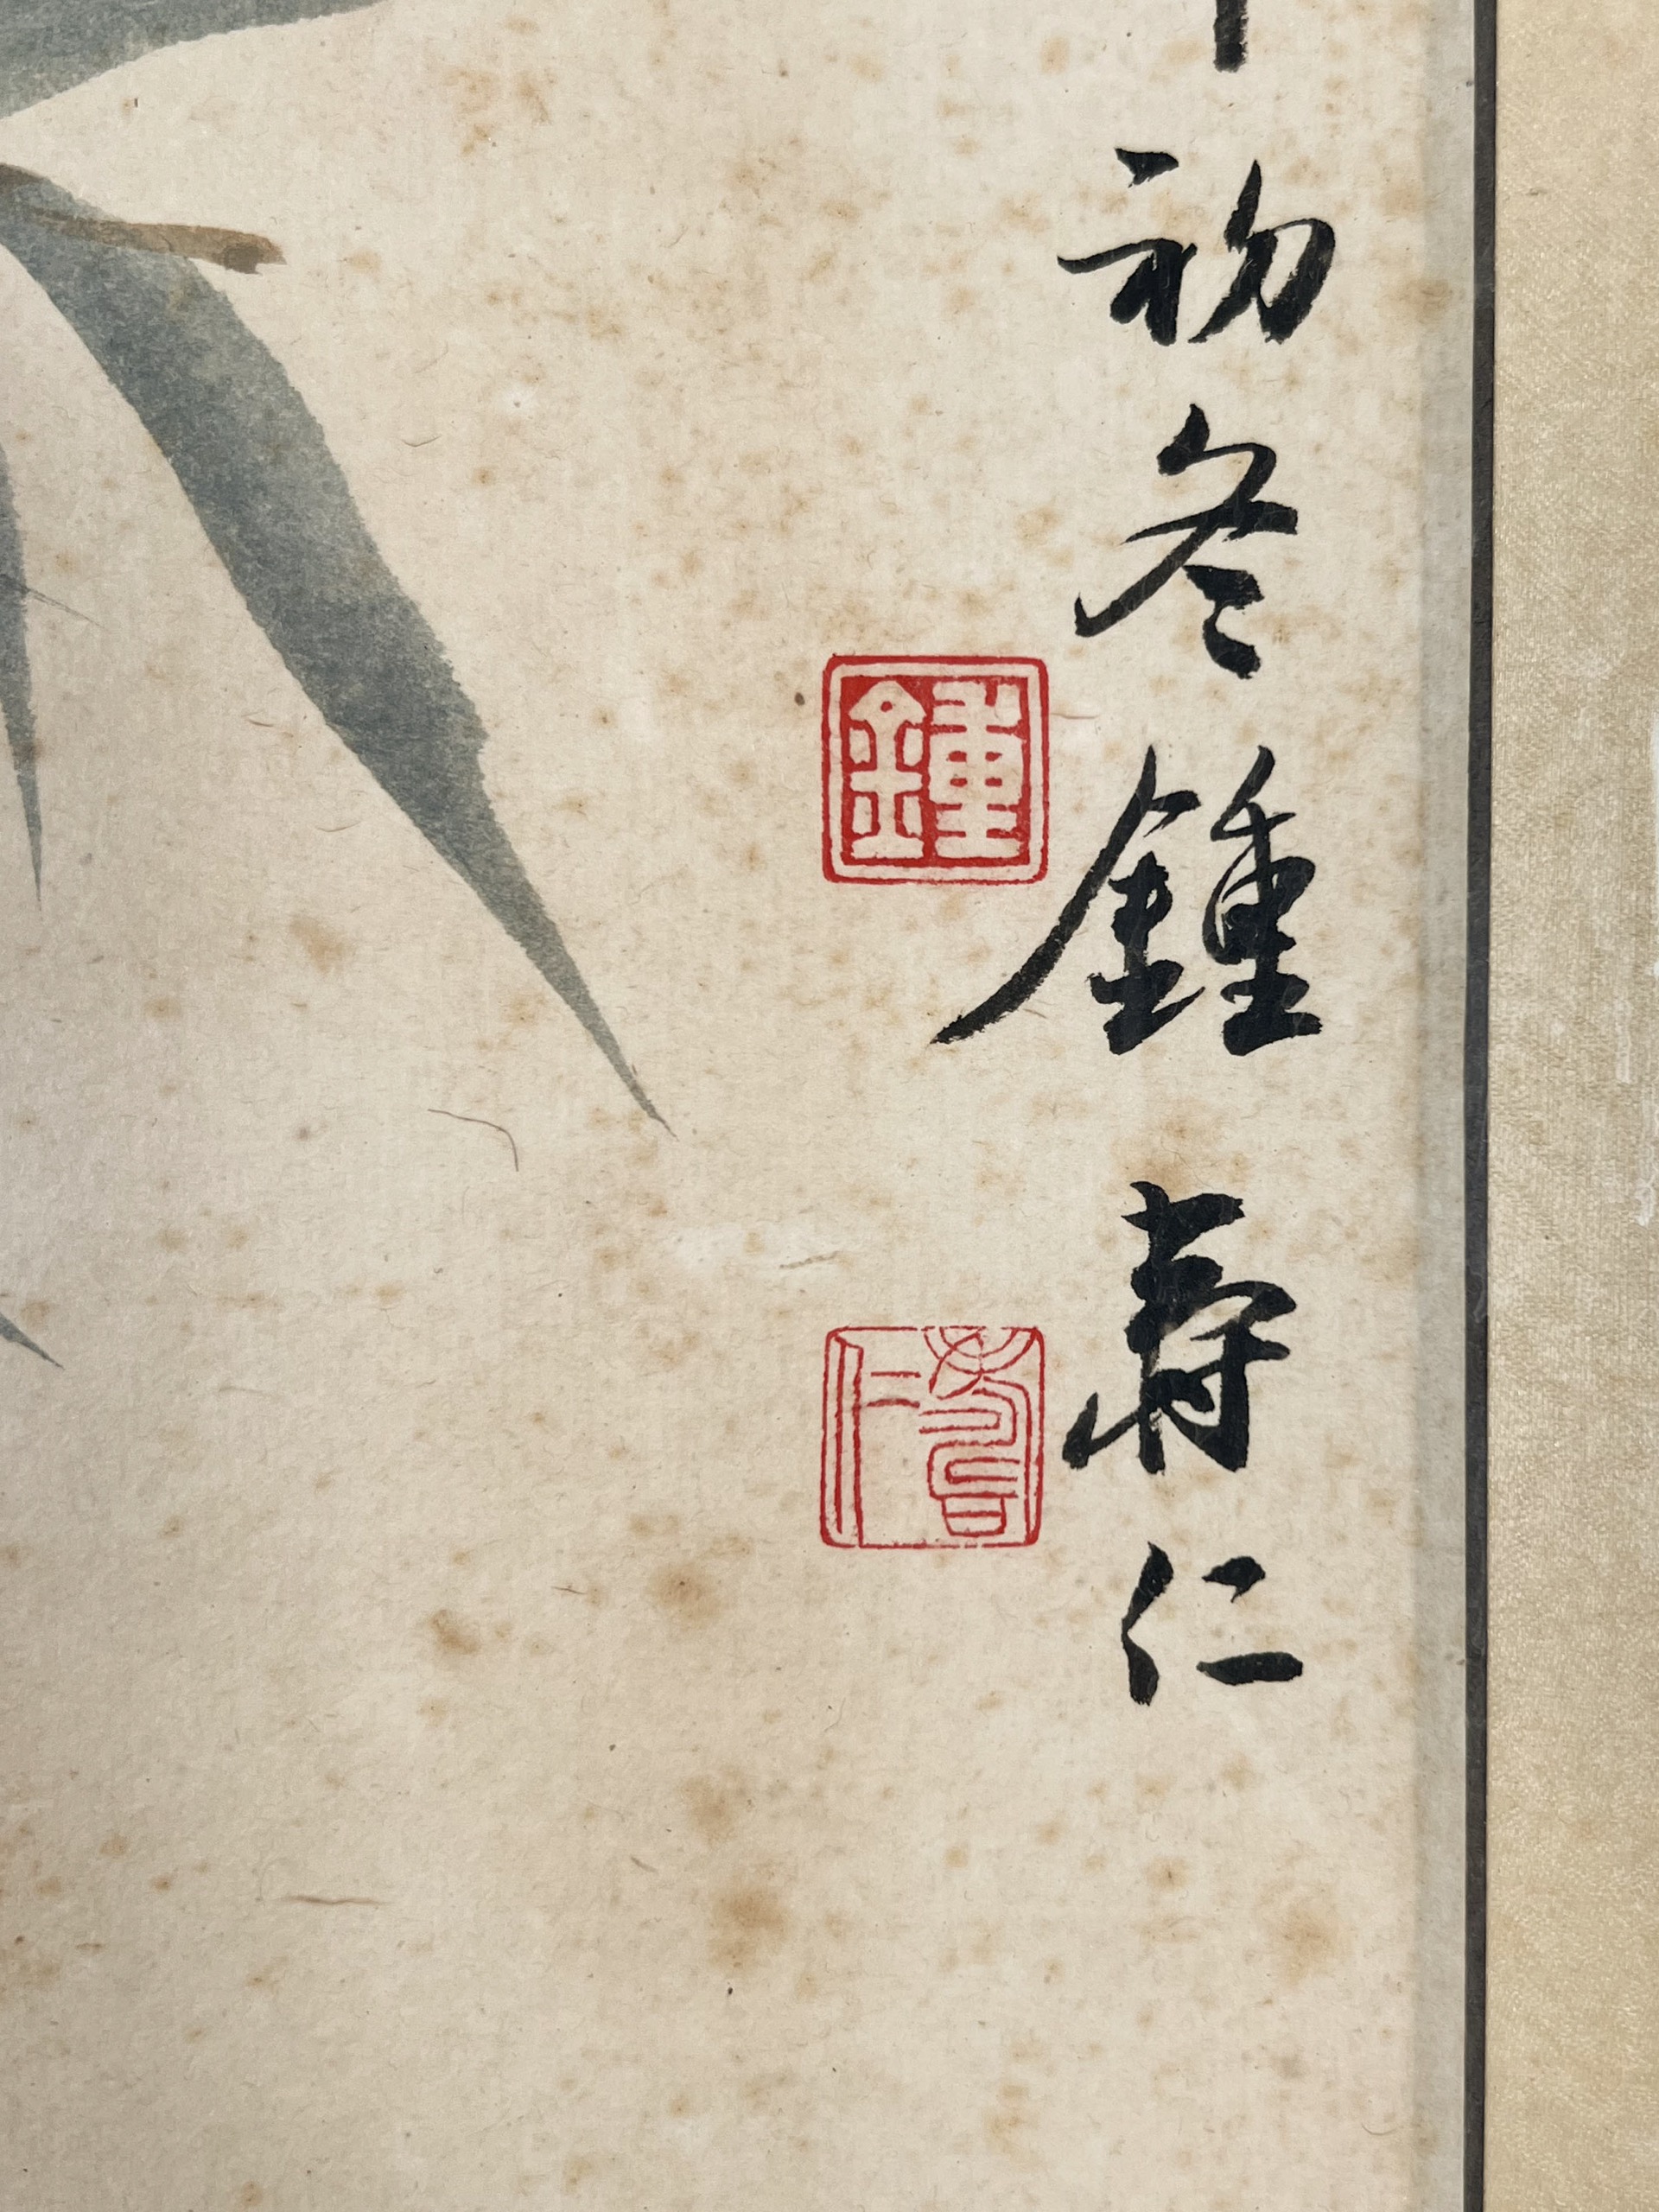 初冬鍾壽仁
鍾
壽仁